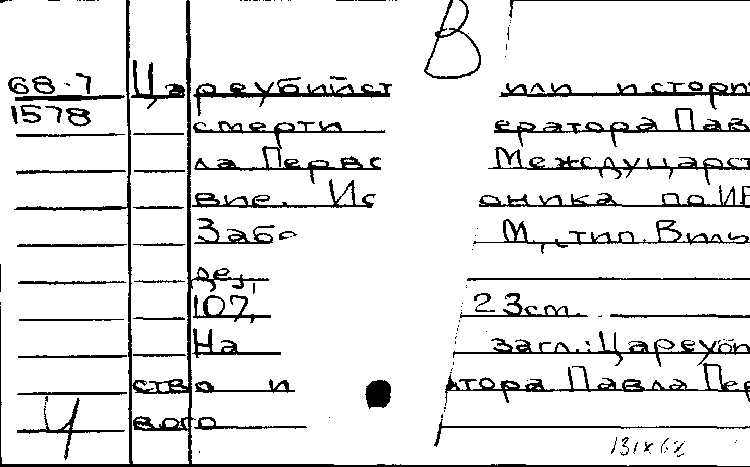 В
68-7 Цареубийст или истори
1578 смерти ератора Пав
ла Перво Междуцарст
вие. Ис оника по ИВ
Забо М., тип. Виль
де,
107, 23cm.
На загл.: Цареуби
ство и атора Павла Пер
вого
131 х 68